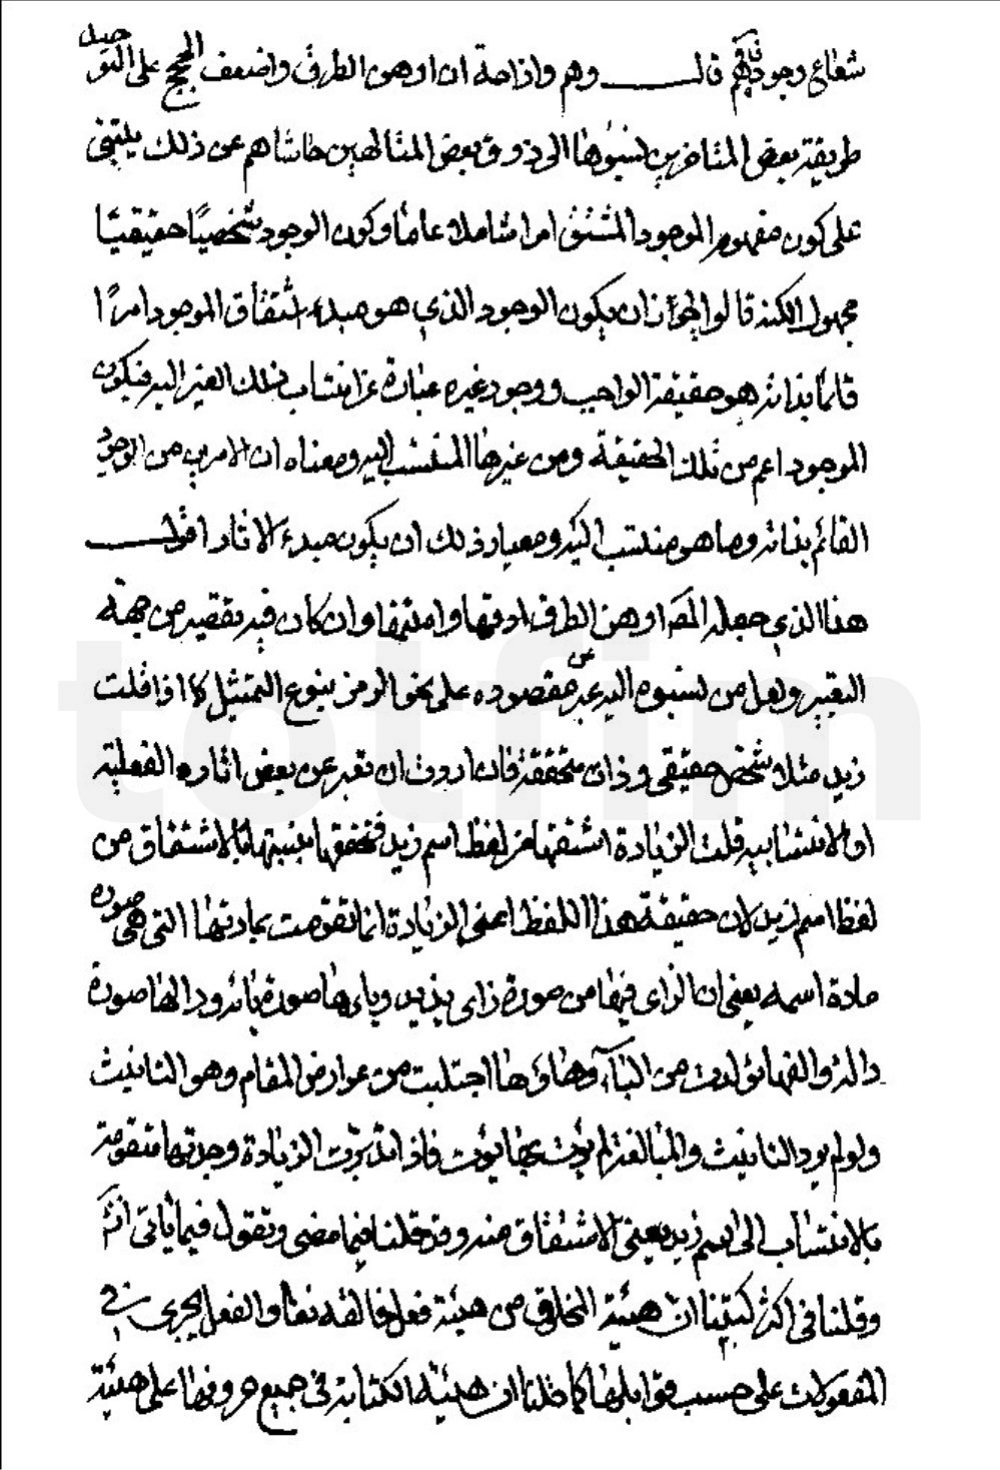 شعاع وجود ناقم قال وهم وازاحة ان اوهن الطرق واضعف الحجج على التوحيد
طريقة بعض المتاخرين نسبوها الى ذوق بعض المتالهين حاشاهم عن ذلك يبتنى
على كون مفهوم الموجود المشتق امرا شاملا عاما وكون الوجود شخصيًا حقيقيًا
مجهول الكنه قالوا يجوز ان يكون الوجود الذي هو مبدء اشتقاق الموجود امرًا
قائما بذاته هو حقيقة الواجب ووجود غيره عبارة عن انتساب ذلك الغير اليه فيكون
الموجود اعم من تلك الحقيقة ومن غيرها المنتسب اليه ومعناه ان الامرين من الوجود
القائم بذاته وما هو منتسب اليه ومعيار ذلك ان يكون مبدء الاثار اقول
هذا الذي جعله المصَ اوهن الطرق ادقها وامتنها وان كان فيه تقصير من جهة
التعبير ولعل من نسبوه اليه عبر عن مقصوده على نحو الرمز بنوع التمثيل كما اذا قلت
زيد مثلا شخص حقيقي وذات متحققة فان اردت ان تعبر عن بعض اثاره الفعلية
او الانتسابيه قلت الزيادة اشتقها من لفظ اسم زيد فتحققها بنسبتها بالاشتقاق من
لفظ اسم زيد لان حقيقة هذا اللفظ اعنى الزيادة انما تقومت بمادتها التى هى صورة
مادة اسمه يعنى ان الزاى فيها من صورة زاى يزيد وياءها صورة يائه ودالها صورة
داله والفها تولدت من الياَء وهاؤها اجتلبت من عوارض المقام وهو التانيث
ولو لم يرد التانيث والمبالغة لم يؤت بها يؤت فاذا تدبرت الزيادة وجدتها متقومة
بالانتساب الى اسم زيد يعنى الاشتقاق منه وقد قلنا فيما مضى ونقول فيما ياتى انشَ
وقلنا فى اكثر كتبنا ان هيئة المخلوق من هيئة فعل خالقه تعا والفعل يجرى في
المفعولات على حسب قوابلها كما قلنا ان هيئة الكتابة فى جميع حروفها على هيئة